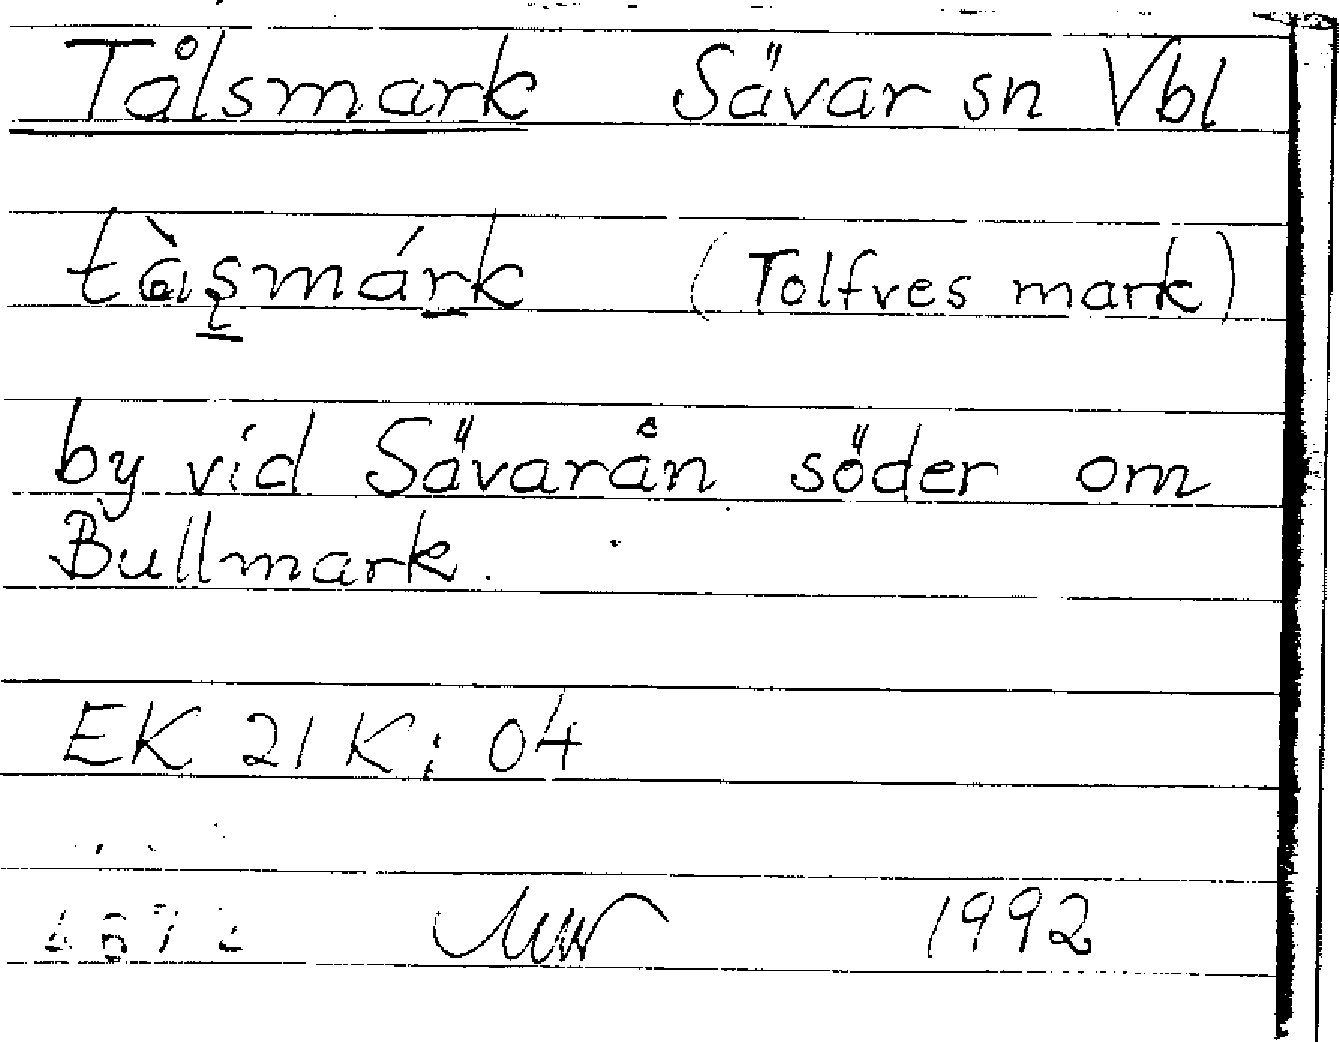 Tålsmark Sävar sn Vbl
tàşmárk (Tolfves mark)
by vid Sävarån söder om
Bullmark.
EK 21 K: 04
1992